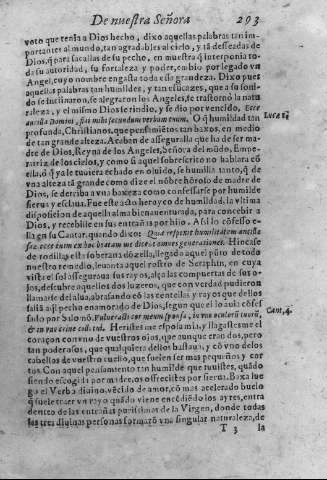 De nuestra Señora 293
voto que tenia a Dios hecho, dixo aquellas palabras tan im-
portantes al mundo, tan agradables al cielo, y tã desseadas de
Dios, q̃ para sacallas de su pecho, en nuestra q̃ interponia to-
da su autoridad, su fortaleza y poder, embio por legado vn
Angel, cuyo nombre engasta toda essa grandeza. Dixo pues
aquellas palabras tan humildes, y tan eficazes, que a su soni-
do se inclinarõ, se alegraron los Angeles, se trastornò la natu
raleza, y el mismo Dios se rindio, y se dio por vencido. Ecce
ancilla Domini, fiat mihi secundum verbum tuum. O q̃ humildad tan
Lucæ 1.
profunda, Christianos, que pensamiẽtos tan baxos, en medio
de tan grande alteza. Acaban de asseguralla que ha de ser ma-
dre de Dios, Reyna de los Angeles, Señora del mũdo, Empe-
ratriz de los cielos, y como si aquel sobrescrito no hablara cõ
ella, o q̃ ya le tuviera echado en oluido, se humilla tanto, q̃ de
vna alteza tã grande como dize el nõbre heroico de madre de
Dios, se derriba a vna baxeza como confessarse por humilde
sierua y esclaua. Fue este acto heroyco de humildad, la vltima
disposicion de aquella alma bienauenturada, para concebir a
Dios, y recebille en sus entrañas por hijo. Assi lo cõfesso e-
lla en su Cantar, quando dixo: Quia respexit humilitatem ancillæ
suæ, ecce enim ex hoc beatam me dicent omnes generationes. Hincase
de rodillas esta soberana dõzella, llegado aquel pũto de todo
nuestro remedio, leuanta aquel rostro de Seraphin, en cuya
vista el sol assegura sus rayos, alça las compuertas de sus o-
jos, descubre aquellos dos luzeros, que con verdad pudieron
llamarse del alua, abrasando cõ las centellas y rayos que dellos
salia aq̃l pecho enamorado de Dios, segun que el lo auia cõfes-
sado por Salomõ. Vulnerasti cor meum sponsa, in vno oculorũ tuorũ,
Cant. 4.
& in vno crine colli tui. Heristes me esposa mia, y llagastesme el
coraçon con vno de vuestros ojos, que aunque eran dos, pero
tan poderosos, que qualquiera dellos bastaua, y cõ vno de los
cabellos de vuestro cuello, que suelen ser mas pequeños y cor
tos. Con aquel pensamiento tan humilde que tuuistes, quãdo
siendo escogida por madre, os ofrecistes por sierua. Baxa lue
go el Verbo diuino, vẽcido de amor, cõ mas acelerado buelo
q̃ suele traer vn rayo quãdo viene encẽdiẽdo los ayres, entra
dentro de las entrañas purissimas de la Virgen, donde todas
las tres diuinas personas formarõ vna singular naturaleza, de
T 3 la